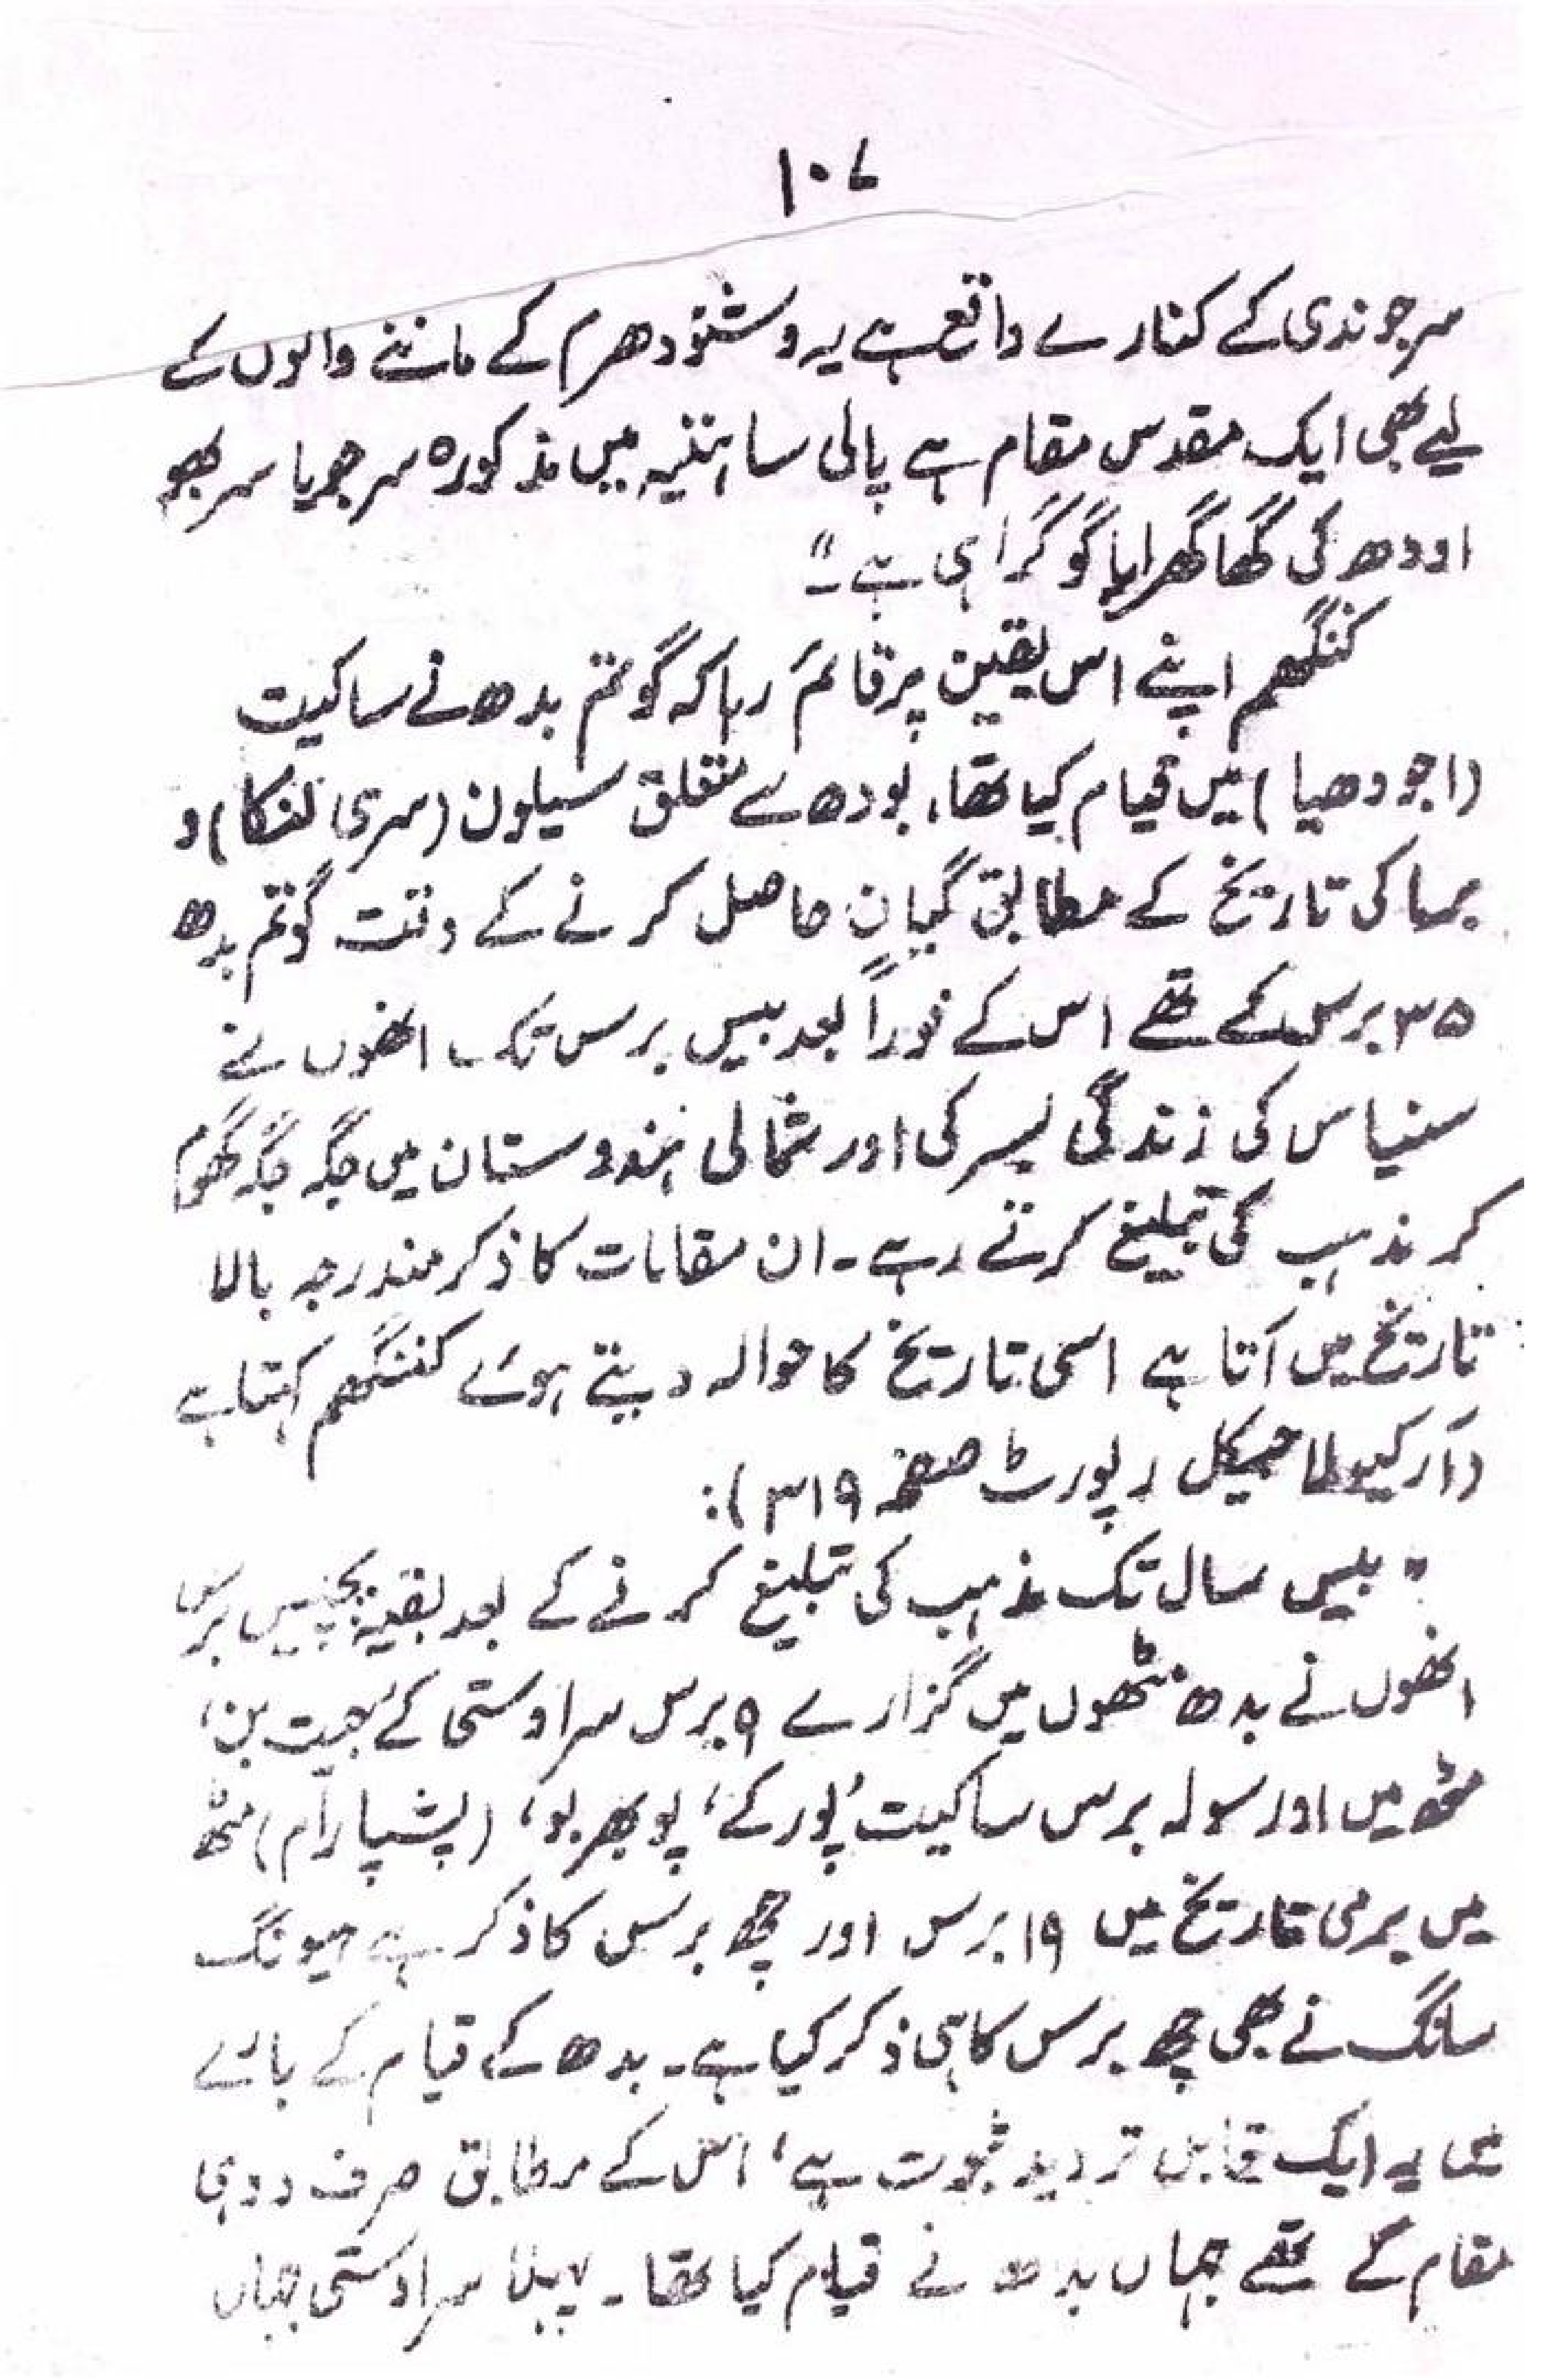 ۱۰۷
سرجو ندی کے کنارے واقع ہے یہ وشنو دھرم کے ماننے والوں کے
لیے بھی ایک مقدس مقام ہے پالی ساہتیہ میں مذکورہ سرجو یا سربھو
اودھ کی گھاگھرا یا گوگرا ہی ہے۔"
کننگھم اپنے اس یقین پر قائم رہا کہ گوتم بدھ نے ساکیت
(اجودھیا) میں قیام کیا تھا، بودھ سے متعلق سیلون (سری لنکا) و
برما کی تاریخ کے مطابق گیان حاصل کرنے کے وقت گوتم بدھ
۳۵ برس کے تھے اس کے فوراً بعد بیس برس تک انھوں نے
سنیاس کی زندگی بسر کی اور شمالی ہندوستان میں جگہ جگہ گھوم
کر مذہب کی تبلیغ کرتے رہے۔ ان مقامات کا ذکر مندرجہ بالا
تاریخ میں آتا ہے اسی تاریخ کا حوالہ دیتے ہوئے کننگھم کہتا ہے
(آرکیولاجیکل رپورٹ صفحہ ۳۱۹):
"بیس سال تک مذہب کی تبلیغ کرنے کے بعد بقیہ پچیس برس
انھوں نے بدھ مٹھوں میں گزارے ۹ برس سراوستی کے 'جیت بن'
مٹھ میں اور سولہ برس ساکیت پور کے 'پوبھربو' (پشپارآم) مٹھ
میں برمی تاریخ میں ۱۹ برس اور چھ برس کا ذکر ہے ہیونگ
سانگ نے بھی چھ برس کا ہی ذکر کیا ہے۔ بدھ کے قیام کے بارے
میں یہ ایک قابل تردید ثبوت ہے، اس کے مطابق صرف دو ہی
مقام گے تھے جہاں بدھ نے قیام کیا تھا۔ پہلا سراوستی جہاں